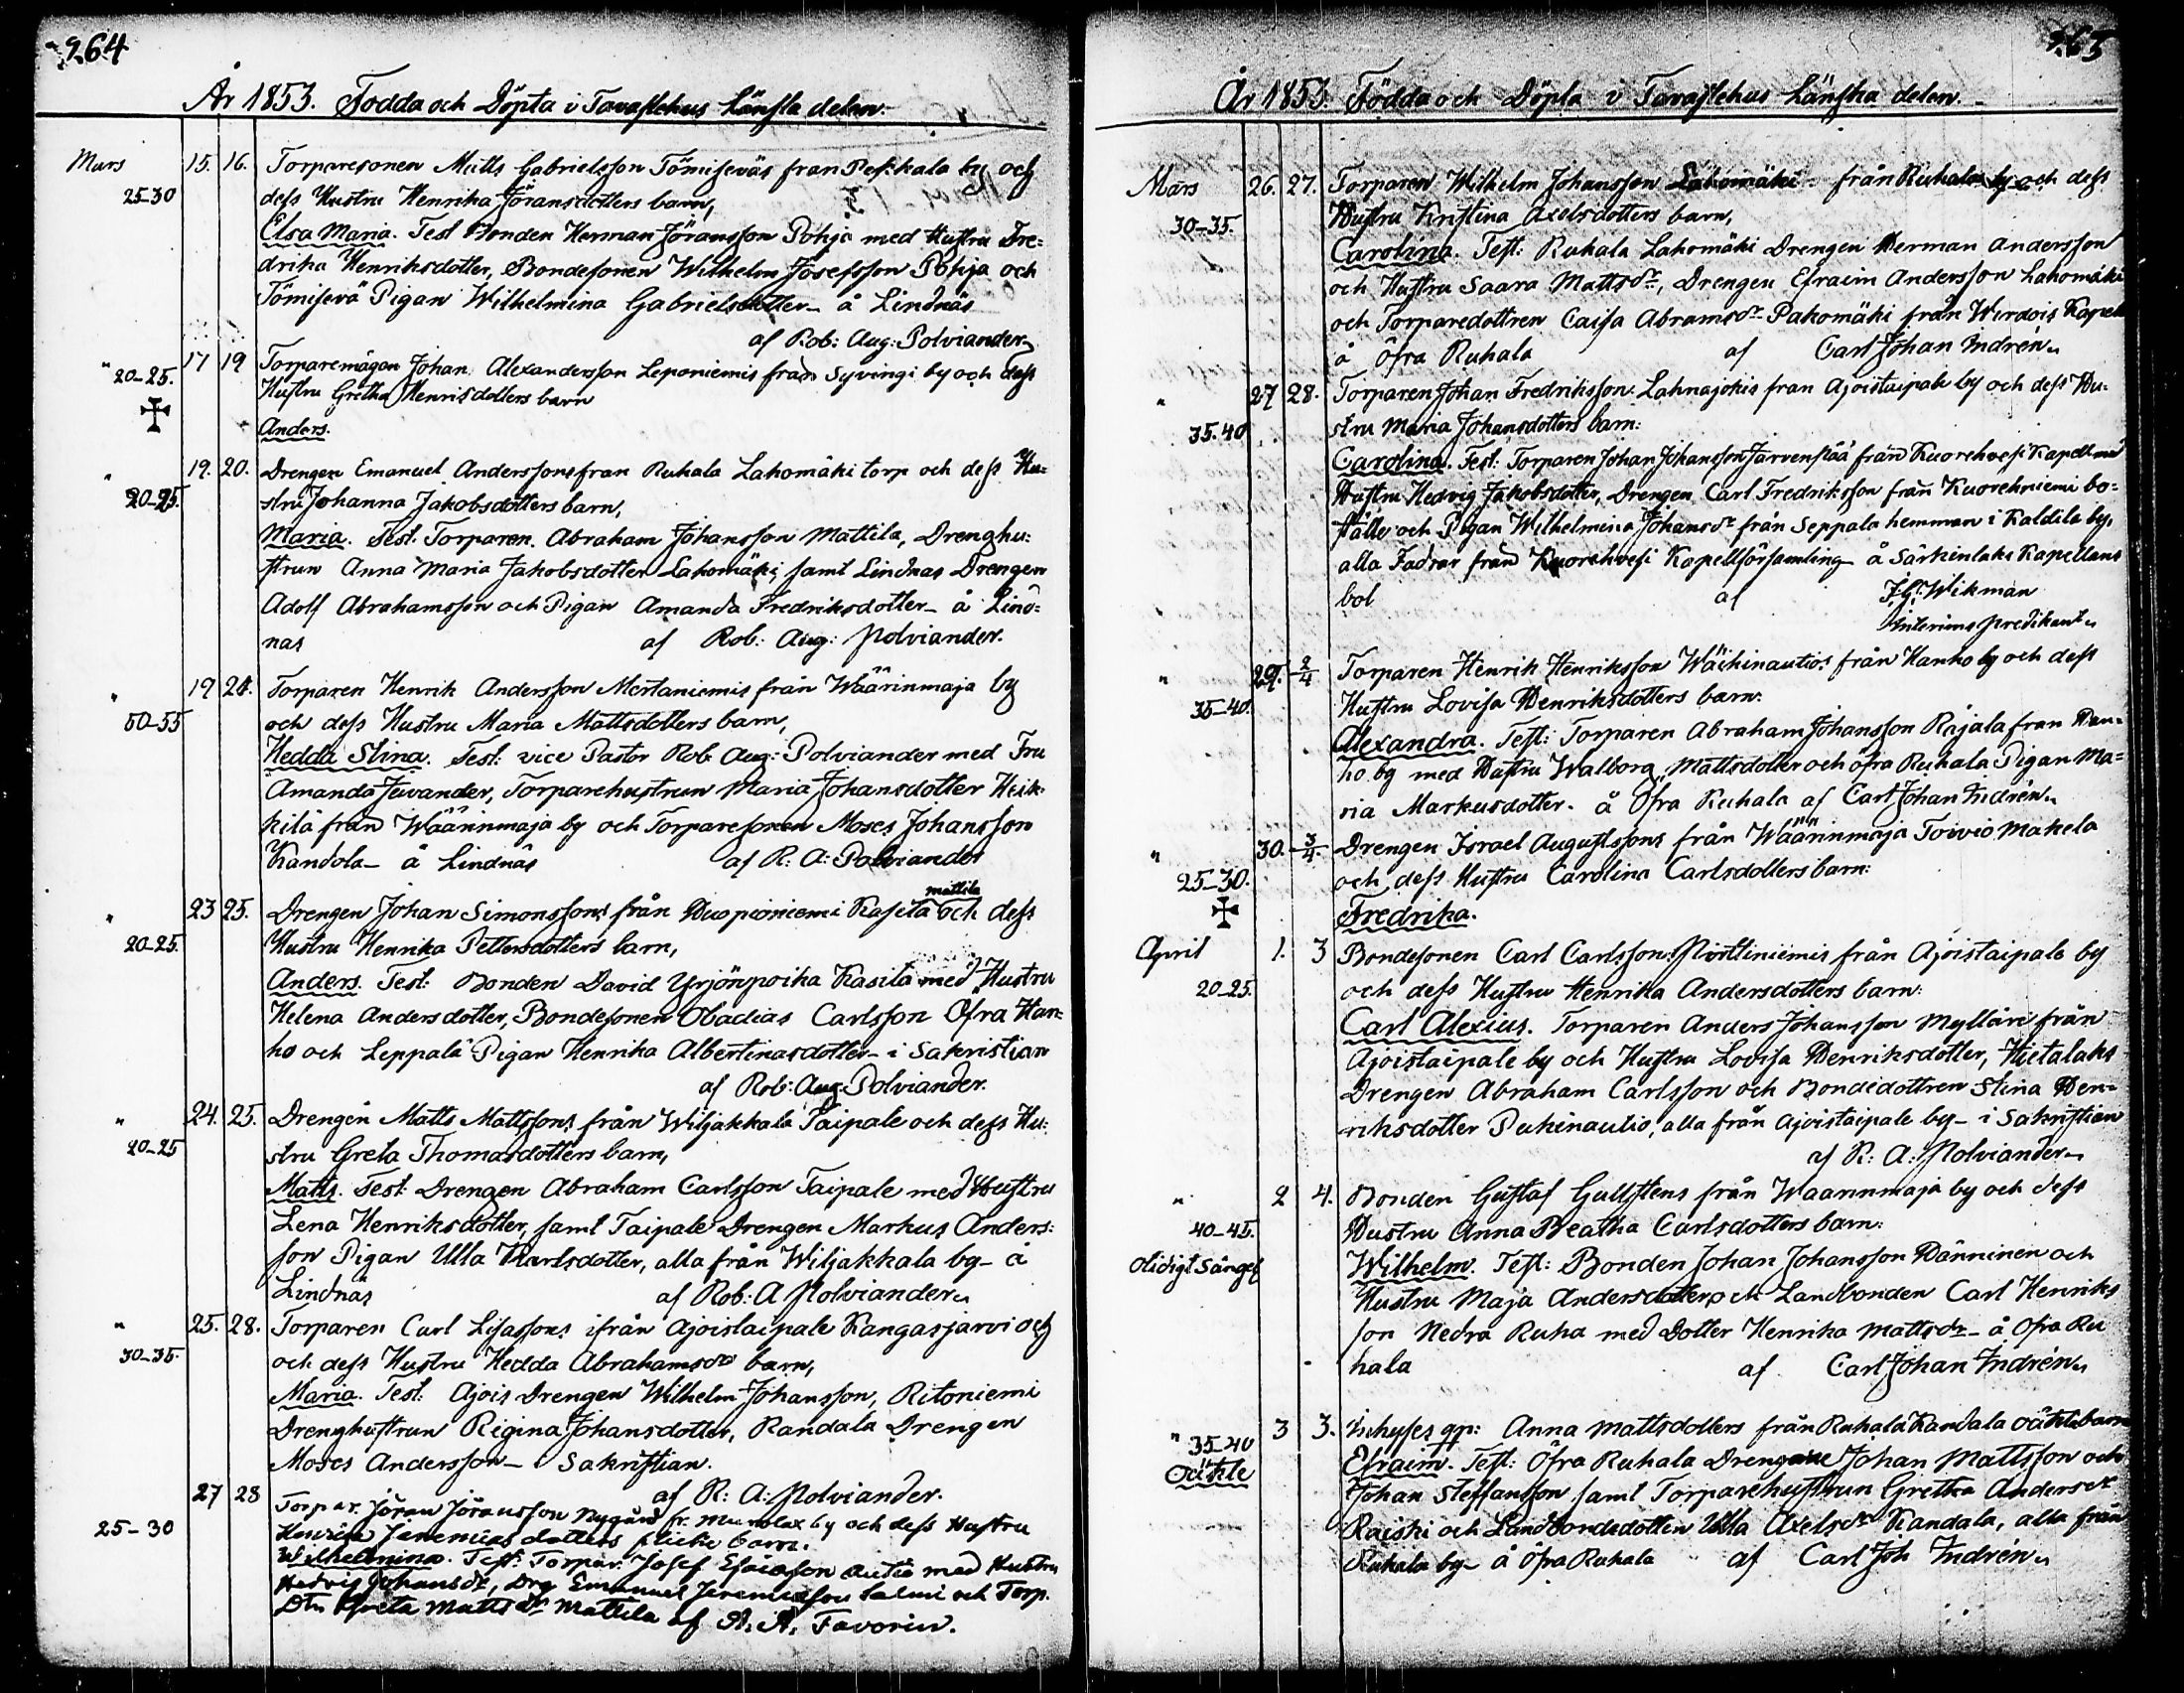 264
År 1853. Födda och Döpta i Tavastehus Länska delen.
Mars 15. 16. Torparesonen Matts Gabrielsson Tömiseväs från Peskkala by och
25-30 dess Hustru Henrika Jöransdotters barn,
Elsa Maria. Test Bonden Herman Jöransson Pohja med Hustru Fre=
drika Henriksdotter, Bondesonen Wilhelm Josefsson Pohja och
Tömisevä Pigan Wilhelmina Gabrielsdotter – å Lindnäs
af Rob: Aug: Polviander
" 17 19 Torparemågen Johan Alexandersson Leponiemis från Syvingi by och dess
20-25. Hustru Gretha Henriksdotters barn
Anders.
" 19. 20. Drengen Emanuel Anderssons från Ruhala Lahomäki torp och dess Hu=
20-25. stru Johanna Jakobsdotters barn,
Maria. Test. Torparen Abraham Johansson Mattila, Drenghu:
strun Anna Maria Jakobsdotter Lahomäki, samt Lindnas Drengen
Adolf Abrahamsson och Pigan Amanda Fredriksdotter – å Lind=
nas af Rob: Aug: Polviander.
" 19 24. Torparen Henrik Andersson Mertaniemis från Wäärinmaja by
50-55 och dess Hustru Maria Mattsdotters barn,
Hedda Stina. Test: vice Pastor Rob Aug: Polviander med Fru
Amanda Jewander, Torparehustrun Maria Johansdotter Heik-
kilä från Wäärinmaja by och Torparesonen Moses Johansson
Kandola – å Lindnäs af R: A: Polviander
mattila
" 23 25. Drengen Johan Simonssons från Huopioniemi Kasila och dess
20-25. Hustru Henrika Pettersdotters barn,
Anders. Test: Bonden David Yrjönpoika Kasila med Hustru
Helena Andersdotter, Bondesonen Obadias Carlsson Öfra Han=
ho och Leppalä Pigan Henrika Albertinasdotter – i Sakristian
af Rob: Aug: Polviander.
" 24. 25. Drengen Matts Mattssons från Wiljakkala Taipale och dess Hu:
20-25 stru Greta Thomasdotters barn,
Matts. Test: Drengen Abraham Carlsson Taipale med Hustru
Lena Henriksdotter, samt Taipale Drengen Markus Anders:
son Pigan Ulla Karlsdotter, alla från Wiljakkala by – å
Lindnäs af Rob: A Polviander
" 25. 28. Torparen Carl Lisassons ifrån Ajoistaipale Kangasjarvi och
30-35. och dess Hustru Hedda Abrahamsdr barn,
Maria. Test: Ajois Drengen Wilhelm Johansson, Ritoniemi
Drenghustrun Regina Johansdotter, Randala Drengen
Moses Andersson – i Sakristian.
af R: A: Polviander.
27 28 Torpar. Jöran Jöransson Nygård fr. Murolax by och dess Hustru
25-30 Henrica Jeremiasdotters flicke barn.
Wilhelmina. Test: Torpar. Josef Esaiasson Autio med Hustru
Hedvig Johansdr, Drg Emanuel Jeremiasson Salmi och Torp.
Dtr Greta Mattsdr Mattila af A. A. Favorin.
265
År 1853. Födda och Döpta i Tavastehus Länska delen.
Mars 26. 27. Torparen Wilhelm Johansson Lahomäki från Ruhala by och dess
30-35. Hustru Kristina Axelsdotters barn,
Carolina. Test: Ruhala Lahomäki Drengen Herman Andersson
och Hustru Saara Mattsdr, Drengen Efraim Andersson Lahomäki
och Torparedottren Caisa Abramsdr Pakomäki från Wirdois Kapell
å Öfra Ruhala af Carl Johan Indrén
" 27 28. Torparen Johan Fredriksson Lahnajokis från Ajoistaipale by och dess Hu-
35.40 stru Maria Johansdotters barn:
Carolina. Test: Torparen Johan Johansson Järvenpää från Kuorehvesi Kapell med
Hustru Hedvig Jakobsdotter, Drengen Carl Fredriksson från Kuorehniemi bo-
ställe och Pigan Wilhelmina Johansdr från Seppala hemman i Kaldila by,
alla Fadrar från Kuorehvesi Kapellförsamling å Särkinlaks Kapellans
bol af Wikman
Interims predikant
" 29. 2/4 Torparen Henrik Henriksson Wäihinautios från Hanho by och dess
35-40. Hustru Lovisa Henriksdotters barn:
Alexandra. Test: Torparen Abraham Johansson Rajala från Han=
ho by med Hustru Walborg Mattsdotter och öfra Ruhala Pigan Ma=
ria Markusdotter. å Öfra Ruhala af Carl Johan Indrén
" 30. 3/4. Drengen Israel Augustssons från Wäärinmaja Toivio makela
25-30. och dess Hustru Carolina Carlsdotters barn:
Fredrika.
April 1. 3 Bondesonen Carl Carlssons Niittiniemis från Ajoistaipale by
20-25. och dess Hustru Henrika Andersdotters barn:
Carl Alexius. Torparen Anders Johansson Mylläri från
Ajoistaipale by och Hustru Lovisa Henriksdotter, Hietalaks
Drengen Abraham Carlsson och Bondedottren Stina Hen=
riksdotter Pukinautio, alla från Ajoistaipale by – i Sakristian
af R: A: Polviander
" 2 4. Bonden Gustaf Gullstens från Waarinmaja by och dess
40-45. Hustru Anna Beatha Carlsdotters barn:
Otidigt Sängel Wilhelm. Test: Bonden Johan Johansson Hänninen och
Hustru Maja Andersdotter och Landbonden Carl Henriks
son Nedra Ruha med Dotter Henrika Mattsdr – å Öfra Ru
hala af Carl Johan Indrén
" 3 3. Inhyses qp: Anna Mattsdotters från Ruhala Kandala oäkta barn
35-40 Oäkte Efraim. Test: Öfra Ruhala Drengarne Johan Mattsson och
Johan Steffansson samt Torparehustrun Gretha Andersdr
Raiski och Landbondedottren Ulla Axelsdr Kandala, alla från
Ruhala by å Öfra Ruhala af Carl Joh Indrén